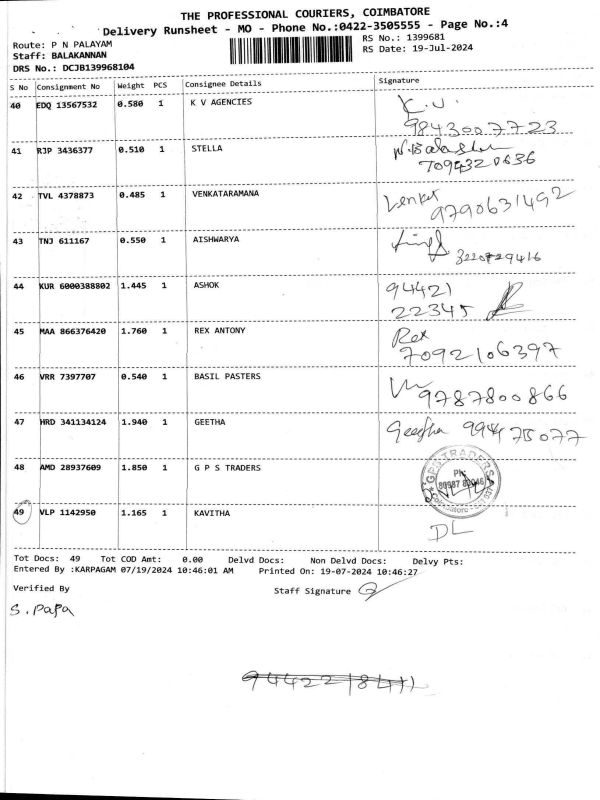 THE PROFESSIONAL COURIERS, COIMBATORE
Delivery Runsheet - MO - Phone No.:0422-3505555 - Page No.:4
Route: P N PALAYAM
RS No.: 1399681
Staff: BALAKANNAN
RS Date: 19-Jul-2024
DRS No.: DCJB139968104
S No Consignment No Weight PCS Consignee Details Signature
40 EDQ 13567532 0.580 1 K V AGENCIES K.V.
9843007723
41 RJP 3436377 0.510 1 STELLA
7094320636
42 TVL 4378873 0.485 1 VENKATARAMANA Venket
9790631492
43 TNJ 611167 0.550 1 AISHWARYA
44 KUR 6000388802 1.445 1 ASHOK 94421
22345
45 MAA 866376420 1.760 1 REX ANTONY Rex
7092106397
46 VRR 7397707 0.540 1 BASIL PASTERS
9787800866
47 HRD 341134124 1.940 1 GEETHA Geetha
48 AMD 28937609 1.850 1 G P S TRADERS GPS TRADERS
Ph:
49 VLP 1142950 1.165 1 KAVITHA
DL
Tot Docs: 49 Tot COD Amt: 0.00 Delvd Docs: Non Delvd Docs: Delvy Pts:
Entered By :KARPAGAM 07/19/2024 10:46:01 AM Printed On: 19-07-2024 10:46:27
Verified By
Staff Signature
S. PaPa